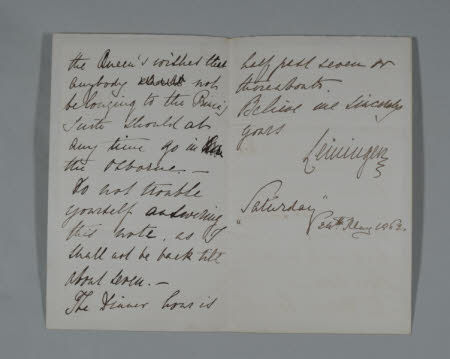 the Queen's wishes that
anybody not
belonging to the Prince's
Suite should at
any time go in
the Osborne. —
Do not trouble
yourself answering
this note, as I
shall not be back till
about seven. —
The Dinner hour is
half past seven or
thereabouts.
Believe me sincerely
yours
Leiningen
"Saturday"
May 1863.